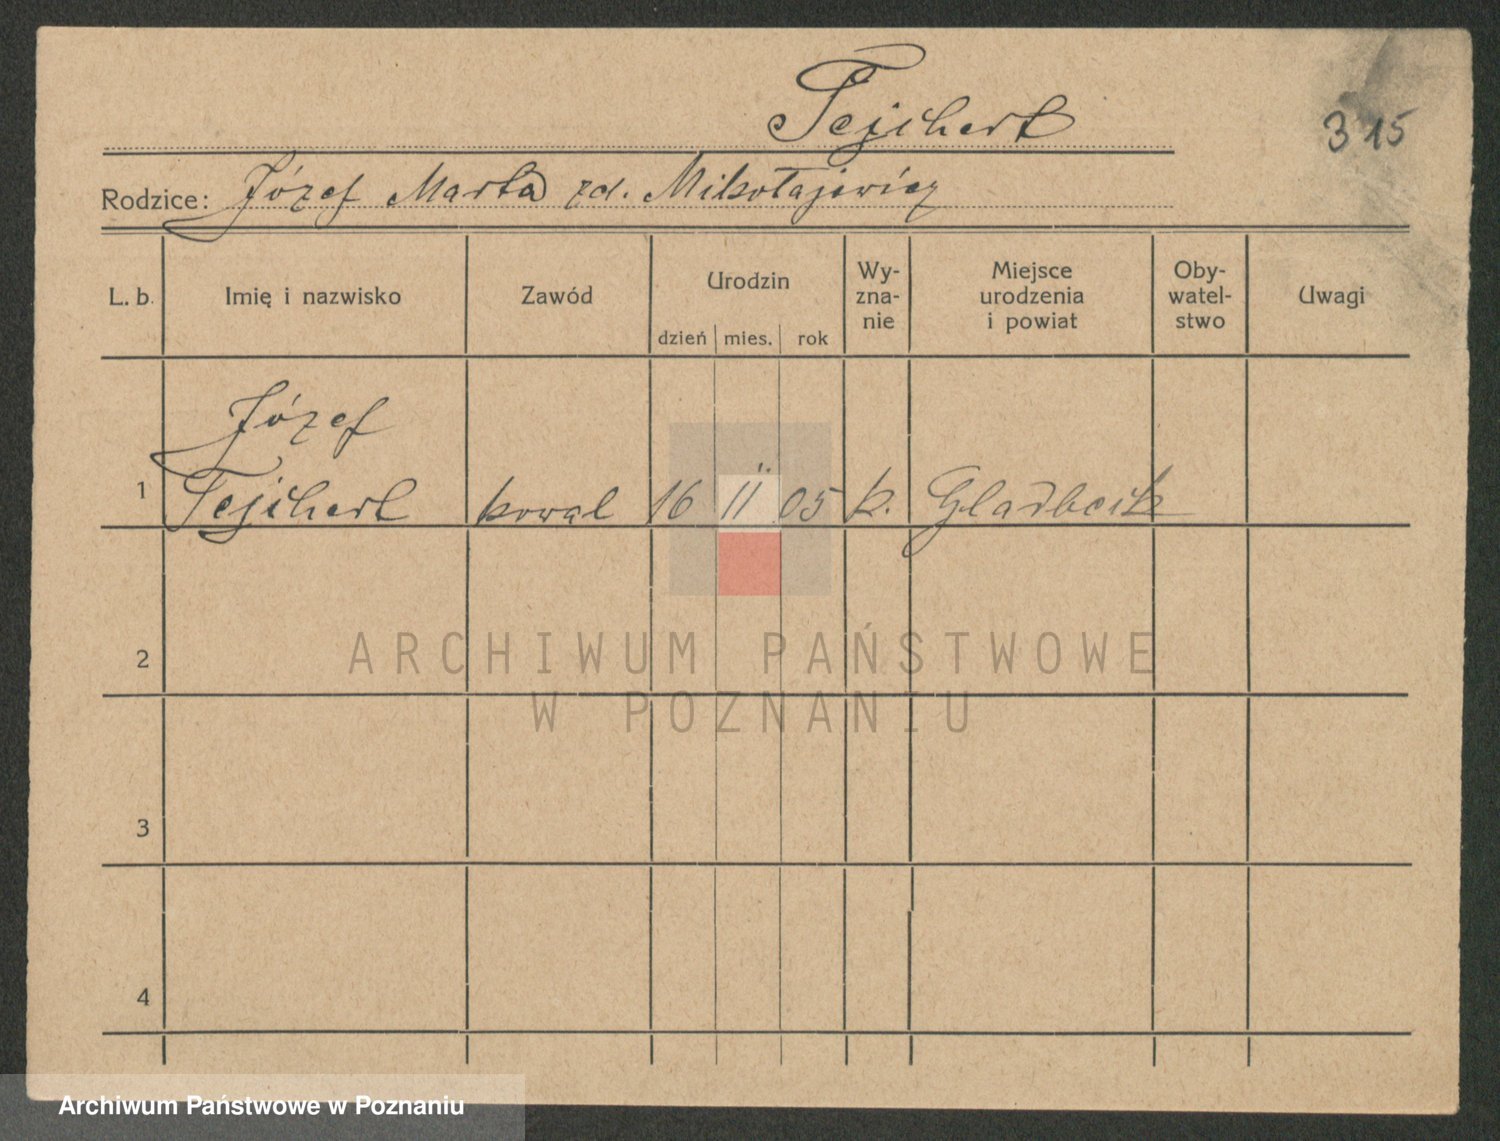 Tejchert
315
Rodzice: Józef Marta zd. Mikołajewicz
L. b. Imię i nazwisko Zawód Urodzin dzień mies. rok Wy-zna-nie Miejsce urodzenia i powiat Oby-watel-stwo Uwagi
Józef
1 Tejchert kowal 16 II 05 k. Gladbeck
2
ARCHIWUM PAŃSTWOWE
W POZNANIU
3
4
Archiwum Państwowe w Poznaniu